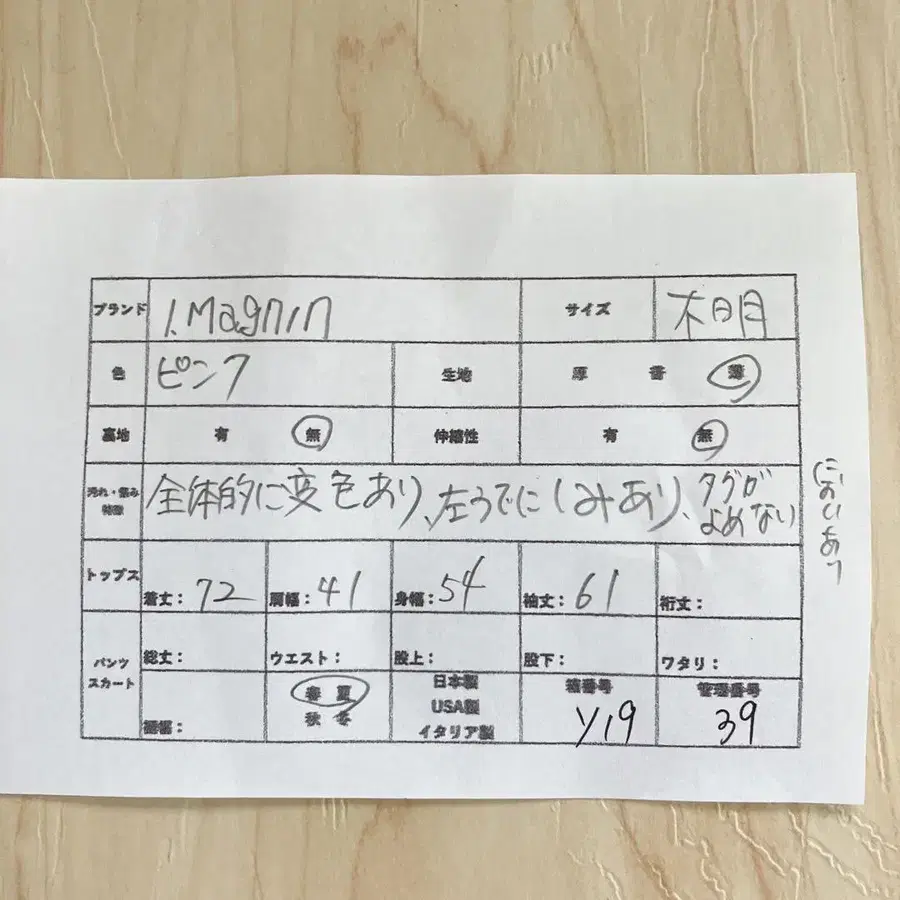 ブランド I.Magnin サイズ 不明
色 ピンク 生地 厚 普 薄
裏地 有 無 伸縮性 有 無
汚れ・傷み 特徴 全体的に変色あり、左うでにしみあり、タグがよめない
においあり
トップス 着丈: 72 肩幅: 41 身幅: 54 袖丈: 61 裄丈:
パンツ スカート 総丈: ウエスト: 股上: 股下: ワタリ:
裾幅: 春 夏 日本製 箱番号 管理番号
秋 冬 USA製 Y19 39
イタリア製